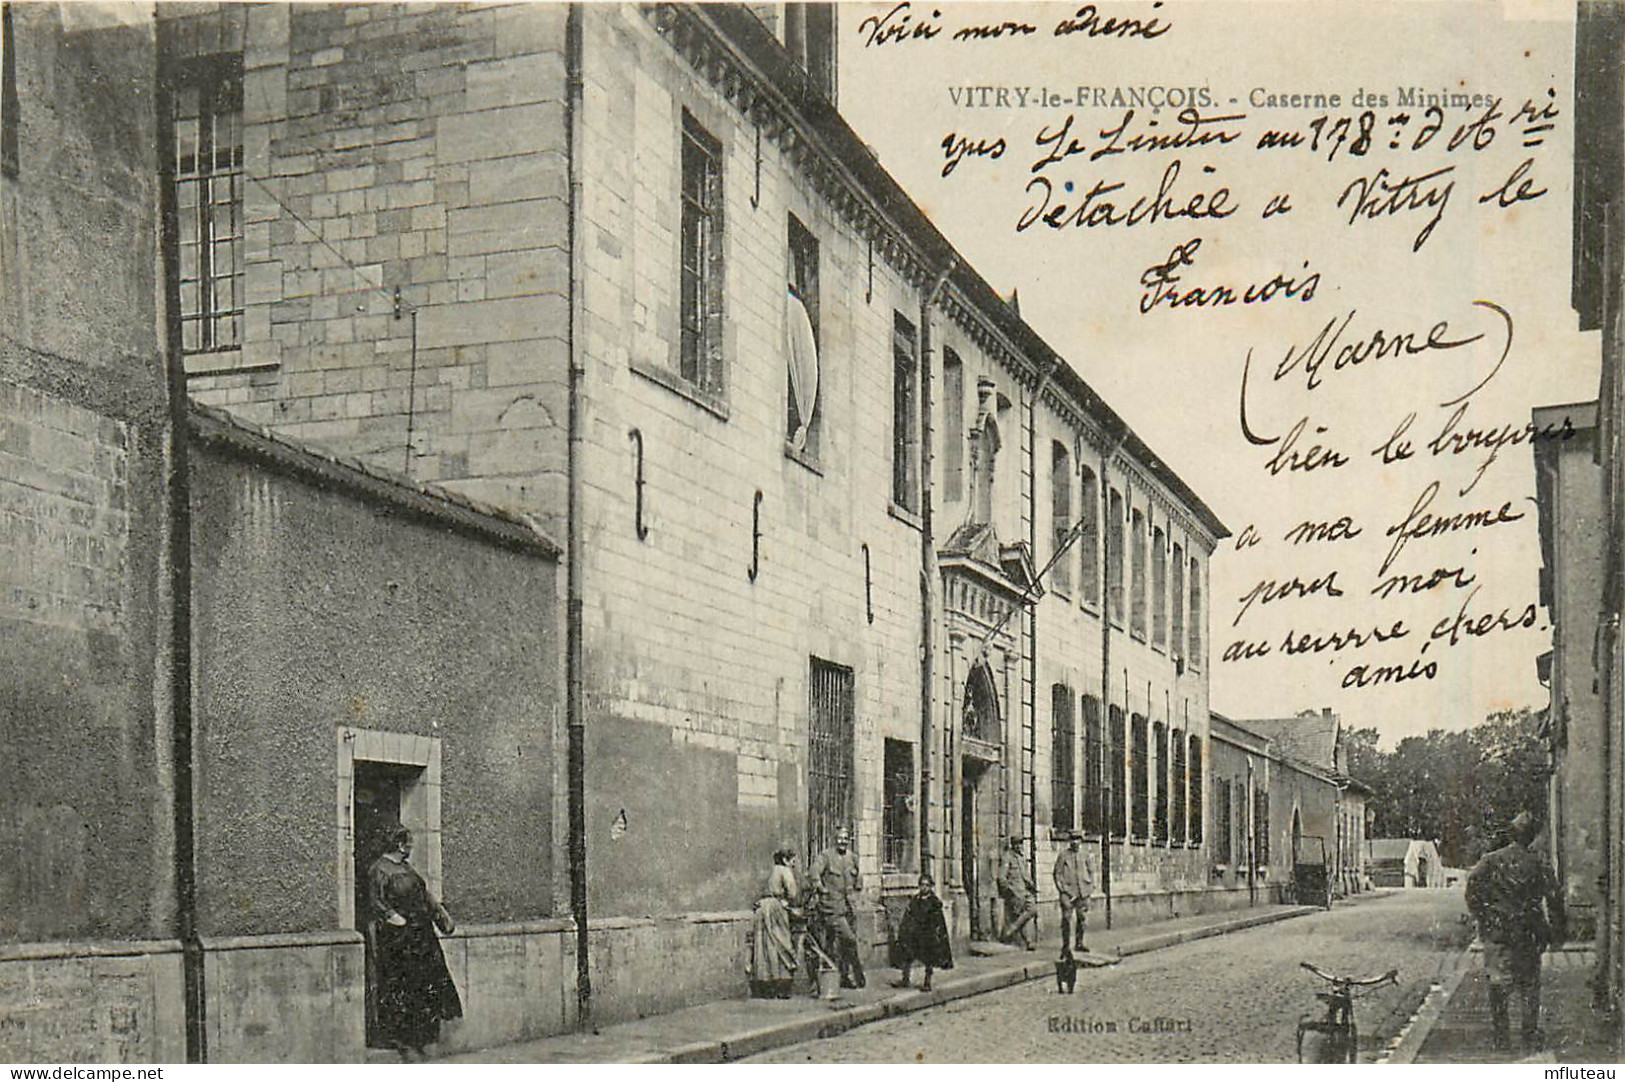 Voici mon adresse
VITRY-le-FRANÇOIS. - Caserne des Minimes
Le au 178
Détachée a Vitry le
Francois
(Marne)
bien le boujour
a ma femme
pour moi
au revirre chers
amis
Edition Caffart
delcampe.net
mfluteau